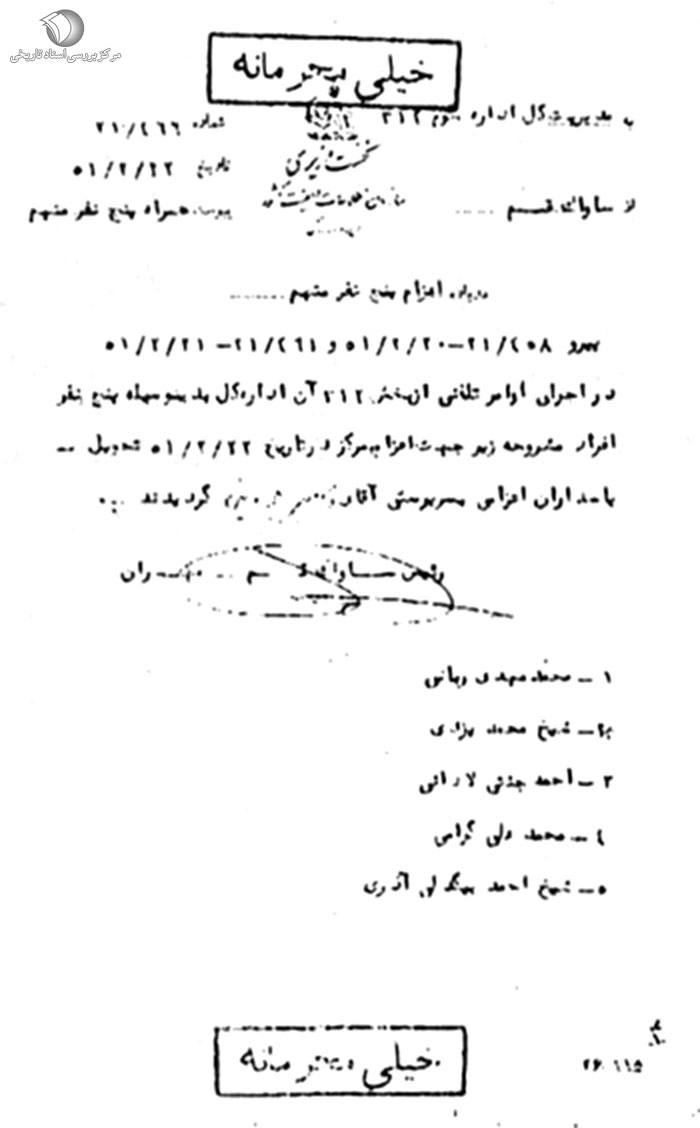 مرکز بررسی اسناد تاریخی
خیلی محرمانه
به مدیریت کل اداره سوم ۳۱۲
شماره ۲۱/۴۶۶
نخست وزیری
تاریخ ۵۱/۲/۲۲
از ساواک قم .....
سازمان اطلاعات و امنیت کشور
پیوست همراه پنج نفر متهم
درباره اعزام پنج نفر متهم ........
پیرو ۲۱/۴۵۸–۵۱/۲/۲۰ و ۲۱/۴۶۱–۵۱/۲/۲۱
در اجرای اوامر تلفنی از بخش ۳۱۲ آن اداره کل بدینوسیله پنج نفر
افراد مشروحه زیر جهت اعزام بمرکز در تاریخ ۵۱/۲/۲۲ تحویل --
پاسداران اعزامی بسرپرستی آقای گردیدند
رئیس ساواک قم
۱ – محمد مهدی ربانی
۲ – شیخ محمد یزدی
۳ – احمد جنتی لادانی
۴ – محمد علی گرامی
۵ – شیخ احمد بیگدلی آذری
خیلی محرمانه